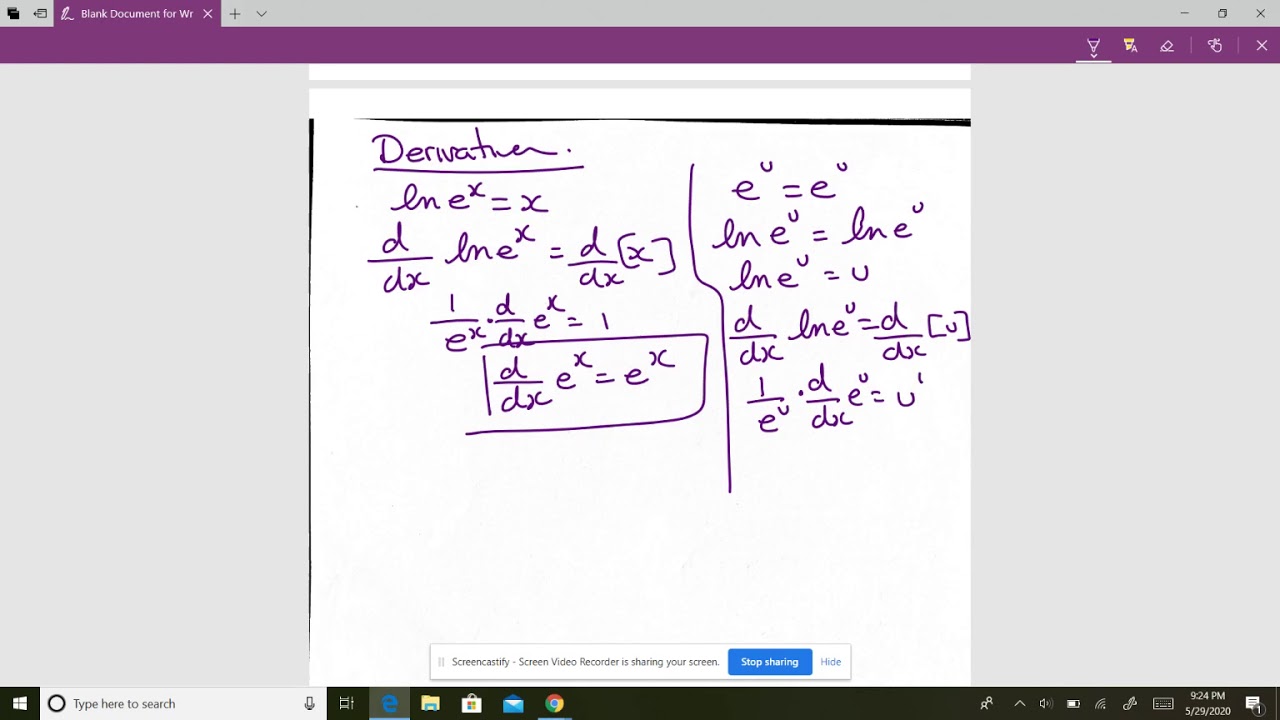 Blank Document for Wr
Derivatives.
ln e^x = x
d/dx ln e^x = d/dx [x]
1/e^x · d/dx e^x = 1
d/dx e^x = e^x
e^u = e^u
ln e^u = ln e^u
ln e^u = u
d/dx ln e^u = d/dx [u]
1/e^u · d/dx e^u = u'
Screencastify - Screen Video Recorder is sharing your screen. Stop sharing Hide
Type here to search
9:24 PM
5/29/2020
1